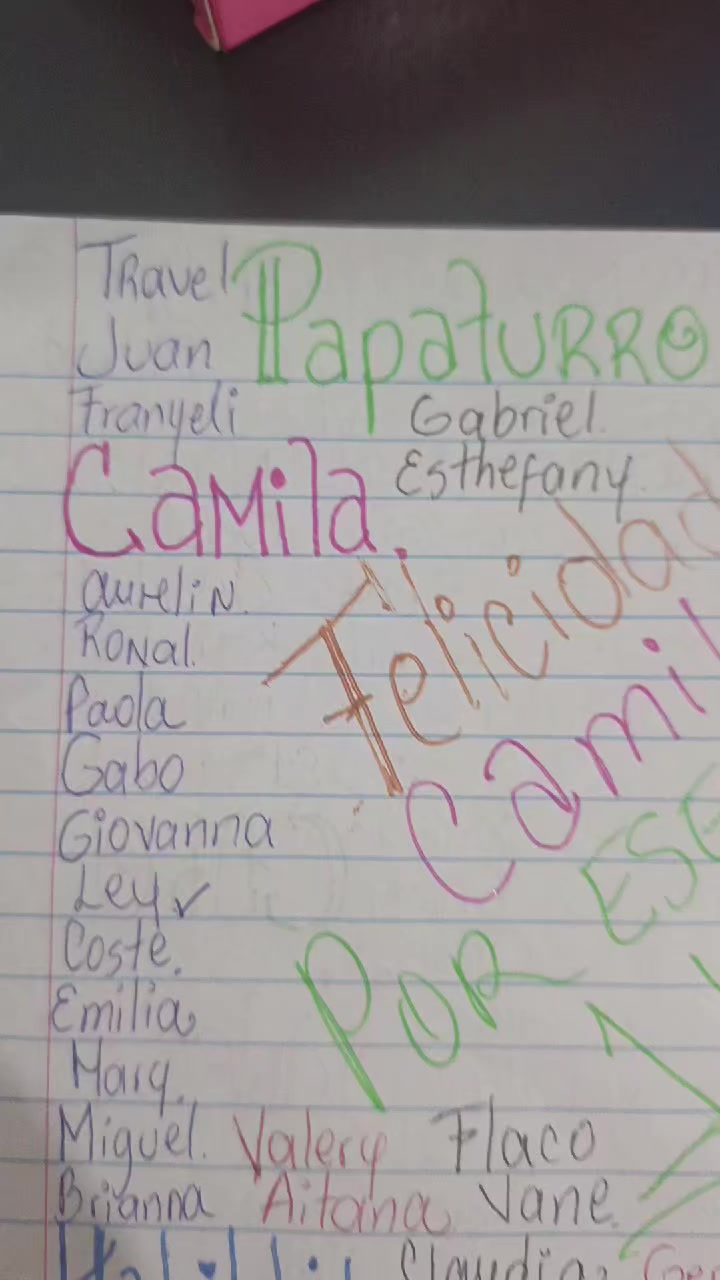 Travel PapaTURRO
Juan
Franyeli Gabriel.
Camila. Esthefany.
aurelin.
Ronal.
Felicidad
Paola
Gabo
Camil
Giovanna
Ley ✓
ESE
Coste.
POR
Emilia
Mary.
Miguel. Valery Flaco
Brianna Aitana Vane.
Claudia